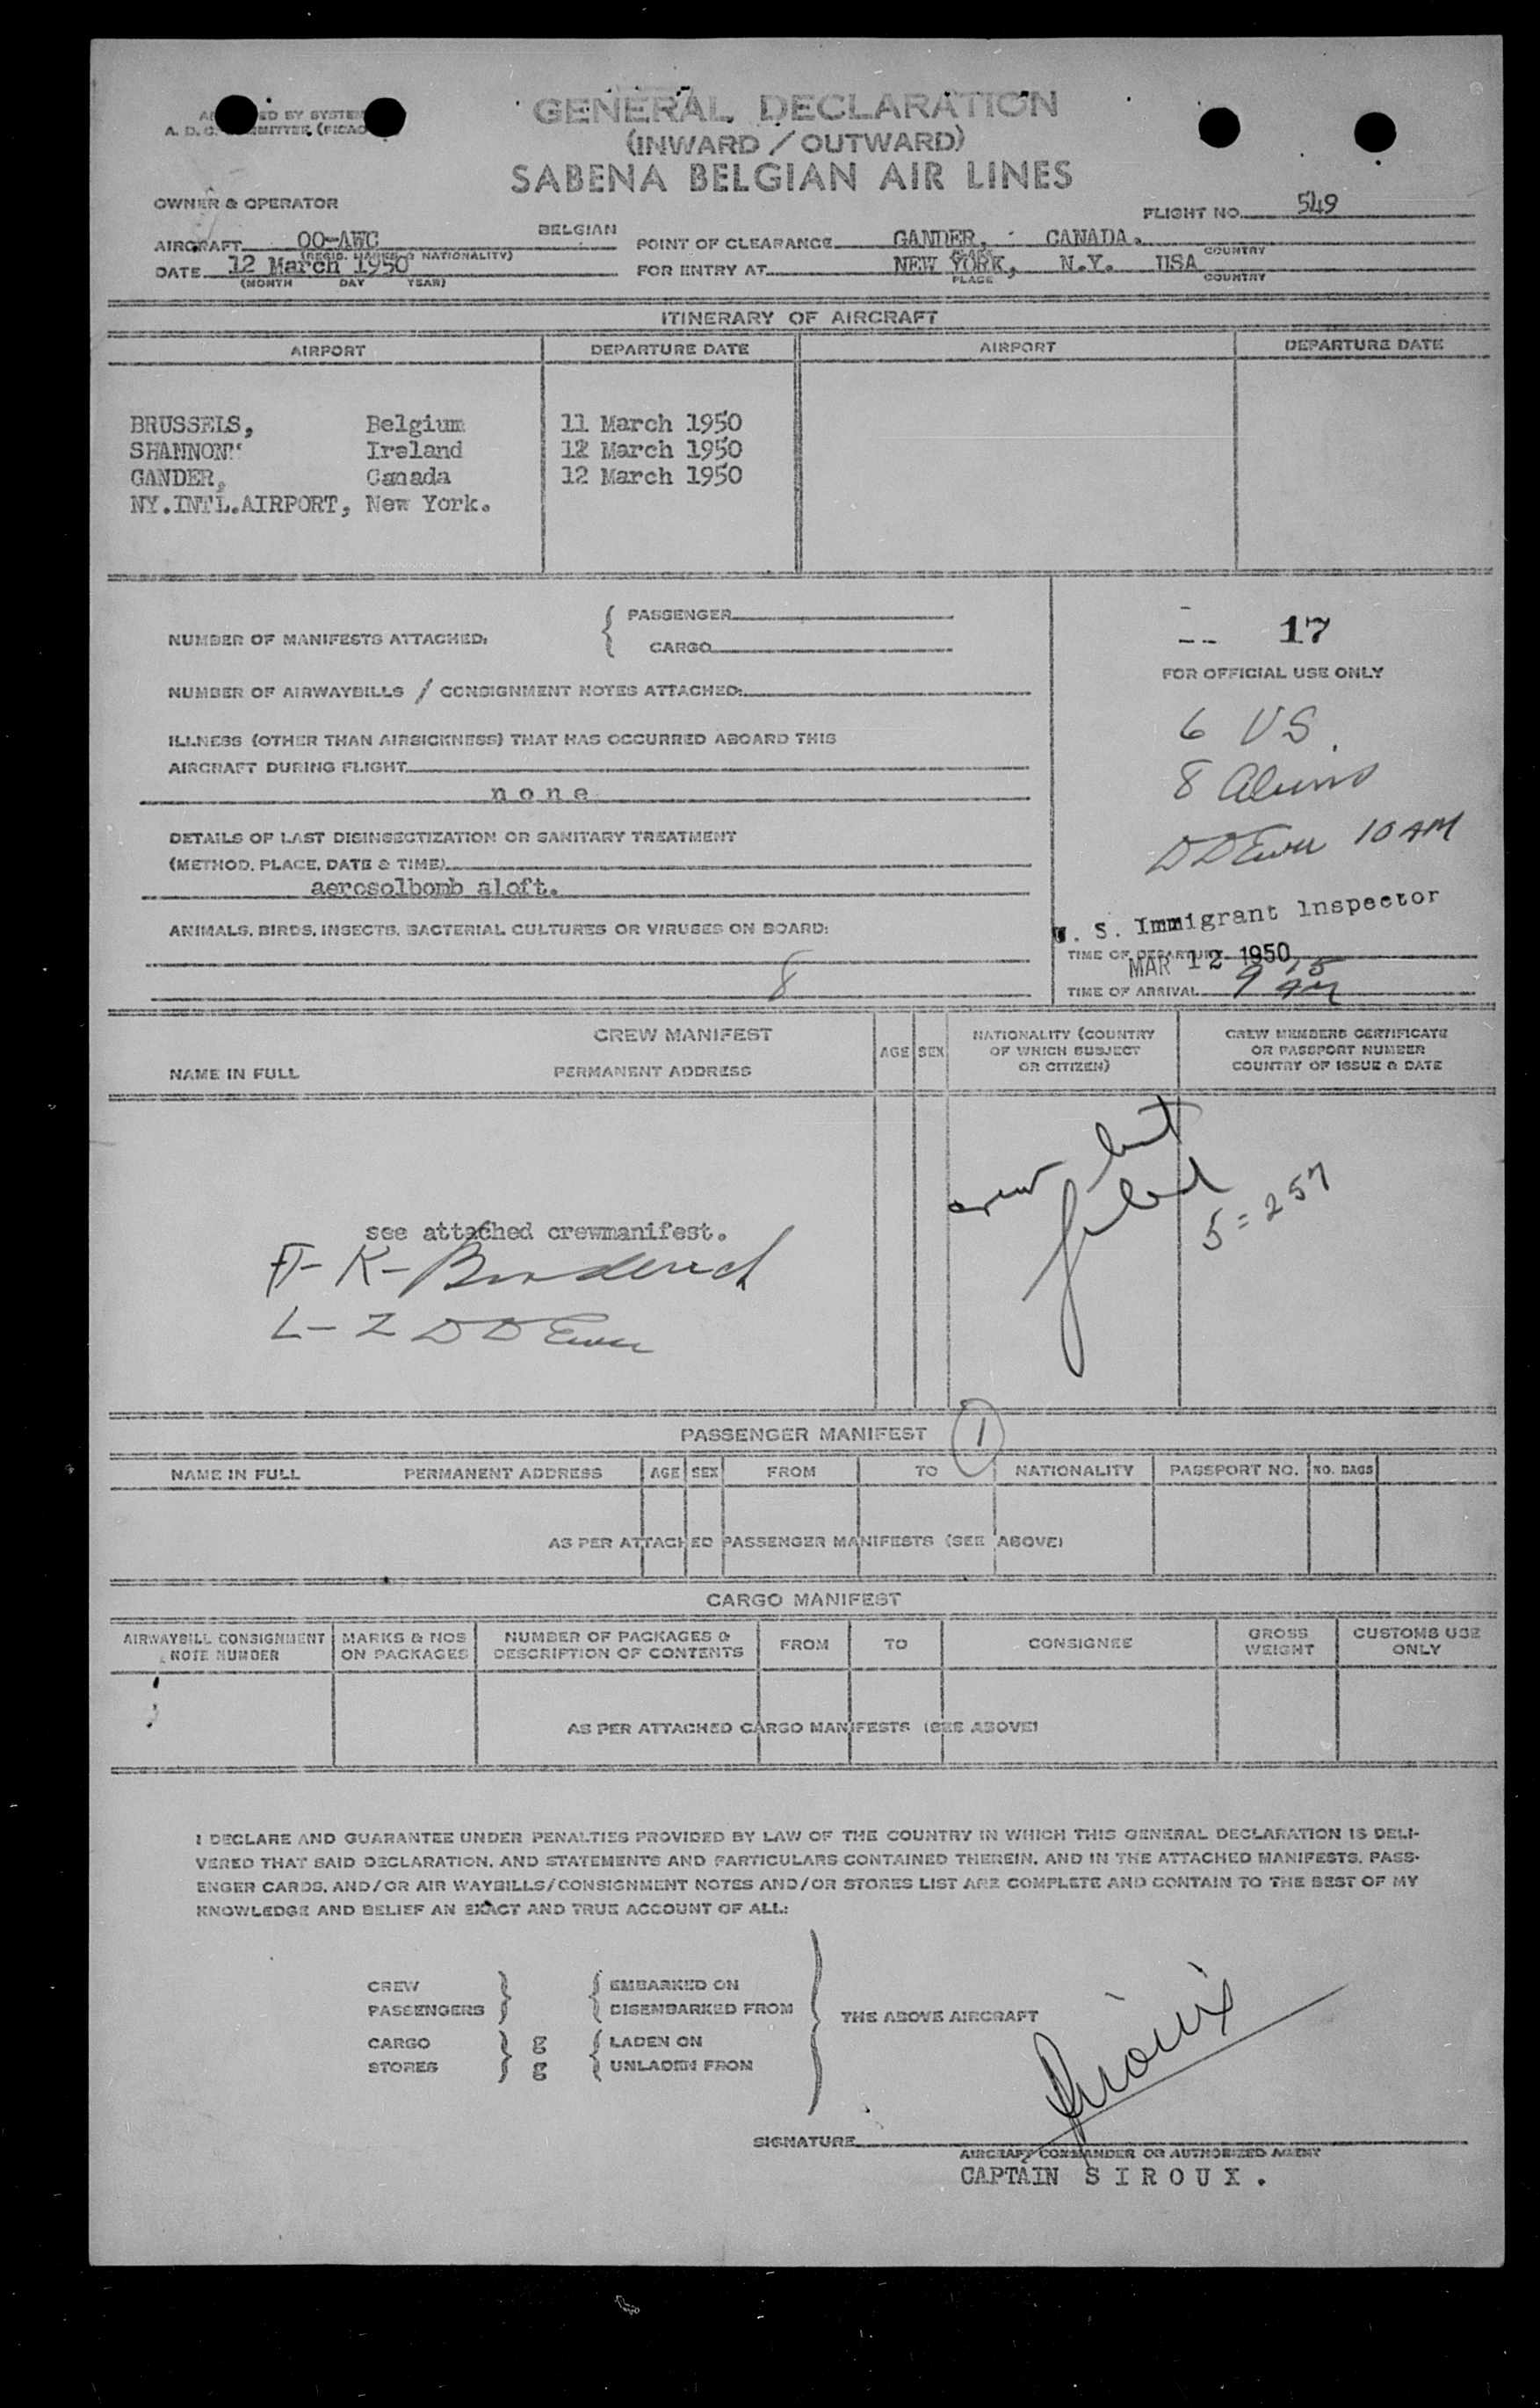 GENERAL DECLARATION
(INWARD / OUTWARD)
SABENA BELGIAN AIR LINES
OWNER & OPERATOR
FLIGHT NO. 549
AIRCRAFT OO-AWC BELGIAN
(REGIS. MARKS & NATIONALITY)
POINT OF CLEARANCE GANDER, CANADA.
COUNTRY
DATE 12 March 1950
(MONTH DAY YEAR)
FOR ENTRY AT NEW YORK, N.Y. USA
PLACE COUNTRY
ITINERARY OF AIRCRAFT
AIRPORT DEPARTURE DATE AIRPORT DEPARTURE DATE
BRUSSELS, Belgium 11 March 1950
SHANNON" Ireland 12 March 1950
GANDER, Canada 12 March 1950
NY.INT'L.AIRPORT, New York.
NUMBER OF MANIFESTS ATTACHED: { PASSENGER
CARGO
NUMBER OF AIRWAYBILLS / CONSIGNMENT NOTES ATTACHED:
ILLNESS (OTHER THAN AIRSICKNESS) THAT HAS OCCURRED ABOARD THIS
AIRCRAFT DURING FLIGHT
none
DETAILS OF LAST DISINSECTIZATION OR SANITARY TREATMENT
(METHOD, PLACE, DATE & TIME)
aerosolbomb aloft.
ANIMALS, BIRDS, INSECTS, BACTERIAL CULTURES OR VIRUSES ON BOARD:
8
-- 17
FOR OFFICIAL USE ONLY
6 US
8 Aliens
10 AM
U. S. Immigrant Inspector
TIME OF DEPARTURE
MAR 12 1950
TIME OF ARRIVAL 9 15 AM
CREW MANIFEST
NAME IN FULL PERMANENT ADDRESS
AGE SEX
NATIONALITY (COUNTRY
OF WHICH SUBJECT
OR CITIZEN)
CREW MEMBERS CERTIFICATE
OR PASSPORT NUMBER
COUNTRY OF ISSUE & DATE
see attached crewmanifest.
crew list
filed
5=257
PASSENGER MANIFEST 1
NAME IN FULL PERMANENT ADDRESS AGE SEX FROM TO NATIONALITY PASSPORT NO. NO. BAGS
AS PER ATTACHED PASSENGER MANIFESTS (SEE ABOVE)
CARGO MANIFEST
AIRWAYBILL CONSIGNMENT
NOTE NUMBER
MARKS & NOS
ON PACKAGES
NUMBER OF PACKAGES &
DESCRIPTION OF CONTENTS
FROM TO CONSIGNEE
GROSS
WEIGHT
CUSTOMS USE
ONLY
AS PER ATTACHED CARGO MANIFESTS (SEE ABOVE)
I DECLARE AND GUARANTEE UNDER PENALTIES PROVIDED BY LAW OF THE COUNTRY IN WHICH THIS GENERAL DECLARATION IS DELI-
VERED THAT SAID DECLARATION, AND STATEMENTS AND PARTICULARS CONTAINED THEREIN, AND IN THE ATTACHED MANIFESTS, PASS-
ENGER CARDS, AND/OR AIR WAYBILLS/CONSIGNMENT NOTES AND/OR STORES LIST ARE COMPLETE AND CONTAIN TO THE BEST OF MY
KNOWLEDGE AND BELIEF AN EXACT AND TRUE ACCOUNT OF ALL:
CREW } { EMBARKED ON
PASSENGERS } { DISEMBARKED FROM
THE ABOVE AIRCRAFT
CARGO } g { LADEN ON
STORES } g { UNLADEN FROM
Siroux
SIGNATURE
AIRCRAFT COMMANDER OR AUTHORIZED AGENT
CAPTAIN SIROUX.